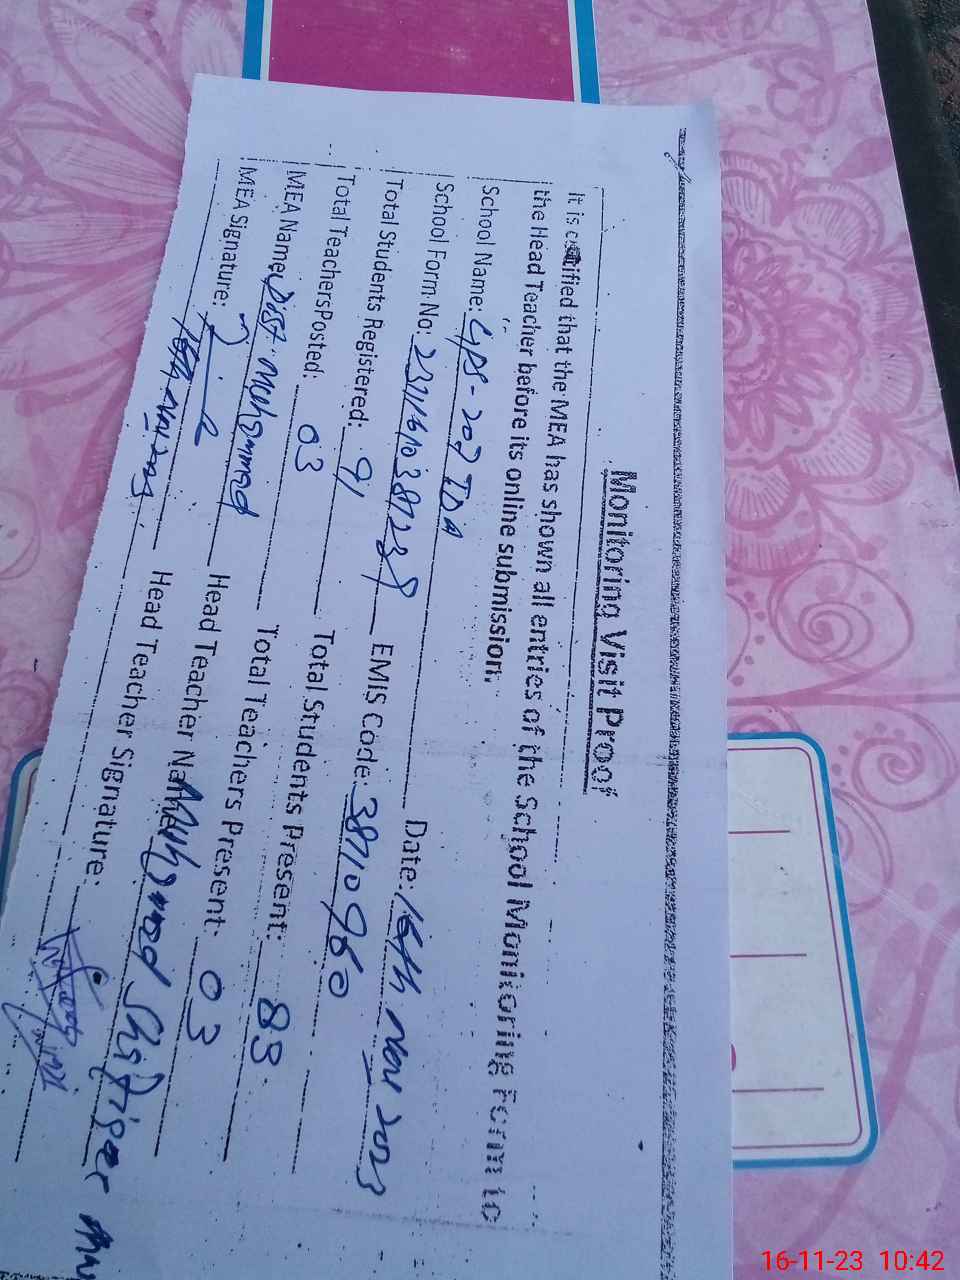 Monitoring Visit Proof
It is certified that the MEA has shown all entries of the School Monitoring Form to
the Head Teacher before its online submission.
School Name: GPS-207 TDA Date: 16th Nov 2023
School Form No: EMIS Code: 38710960
Total Students Registered: 91 Total Students Present: 83
Total Teachers Posted: 03 Total Teachers Present: 03
MEA Name: Mohammad Head Teacher Name: Muhammad
MEA Signature: Head Teacher Signature:
16th Nov 2023
16-11-23 10:42